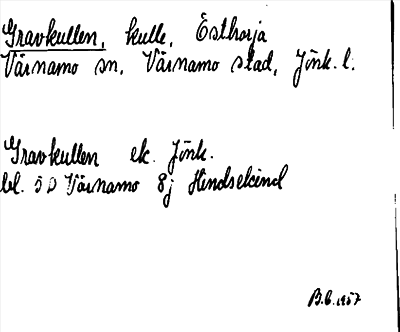 Gravkullen, kulle, Östhorja
Värnamo sn, Värnamo stad, Jönk. l.
Gravkullen ek. Jönk.
bl. 5D Värnamo 8j Hindsekind
B.C. 1957